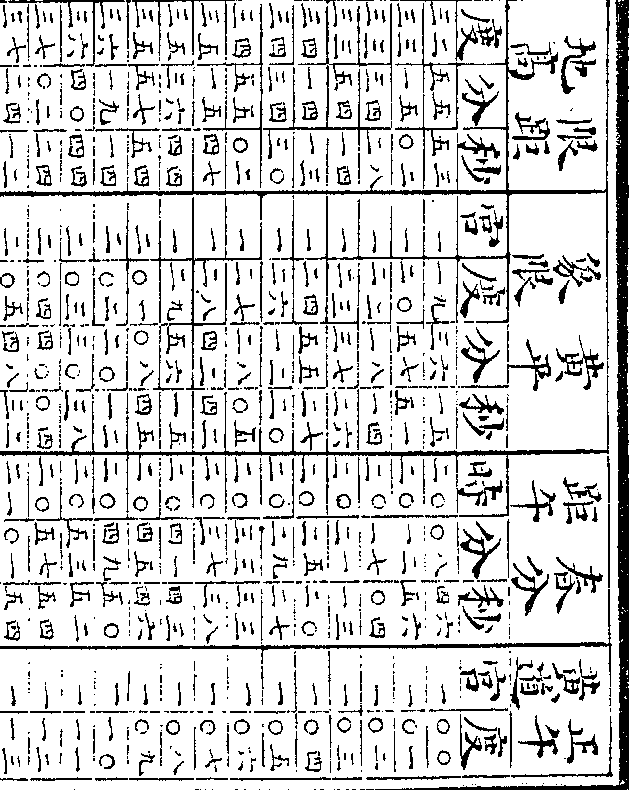 地限 後黄 距春 黄正
高距 限平 午分 道午
度 分 秒 宫 度 分 秒 時 分 秒 宫 度
三二 五五 五三 一 一九 三六 一五 二〇 〇八 四六 一 〇〇
三三 一五 〇二 一 二〇 五七 五一 二〇 一二 五六 一 〇一
三三 三四 二八 一 二二 一八 一四 二〇 一七 〇四 一 〇二
三三 五四 一四 一 二三 三七 二六 二〇 二一 一三 一 〇三
三四 一四 一三 一 二四 五五 二七 二〇 二五 二〇 一 〇四
三四 三四 三〇 一 二六 一二 二〇 二〇 二九 二七 一 〇五
三四 五五 〇二 一 二七 二八 〇五 二〇 三三 三二 一 〇六
三五 一五 四七 一 二八 四二 四二 二〇 三七 三八 一 〇七
三五 三六 四四 一 二九 五六 一五 二〇 四一 四三 一 〇八
三五 五七 五四 二 〇一 〇八 四五 二〇 四五 四六 一 〇九
三六 一九 一四 二 〇二 二〇 一二 二〇 四九 五〇 一 一〇
三六 四〇 四四 二 〇三 三〇 三八 二〇 五三 五二 一 一一
三七 〇二 二四 二 〇四 四〇 〇四 二〇 五七 五四 一 一二
三七 二四 一二 二 〇五 四八 三二 二一 〇一 五四 一 一三